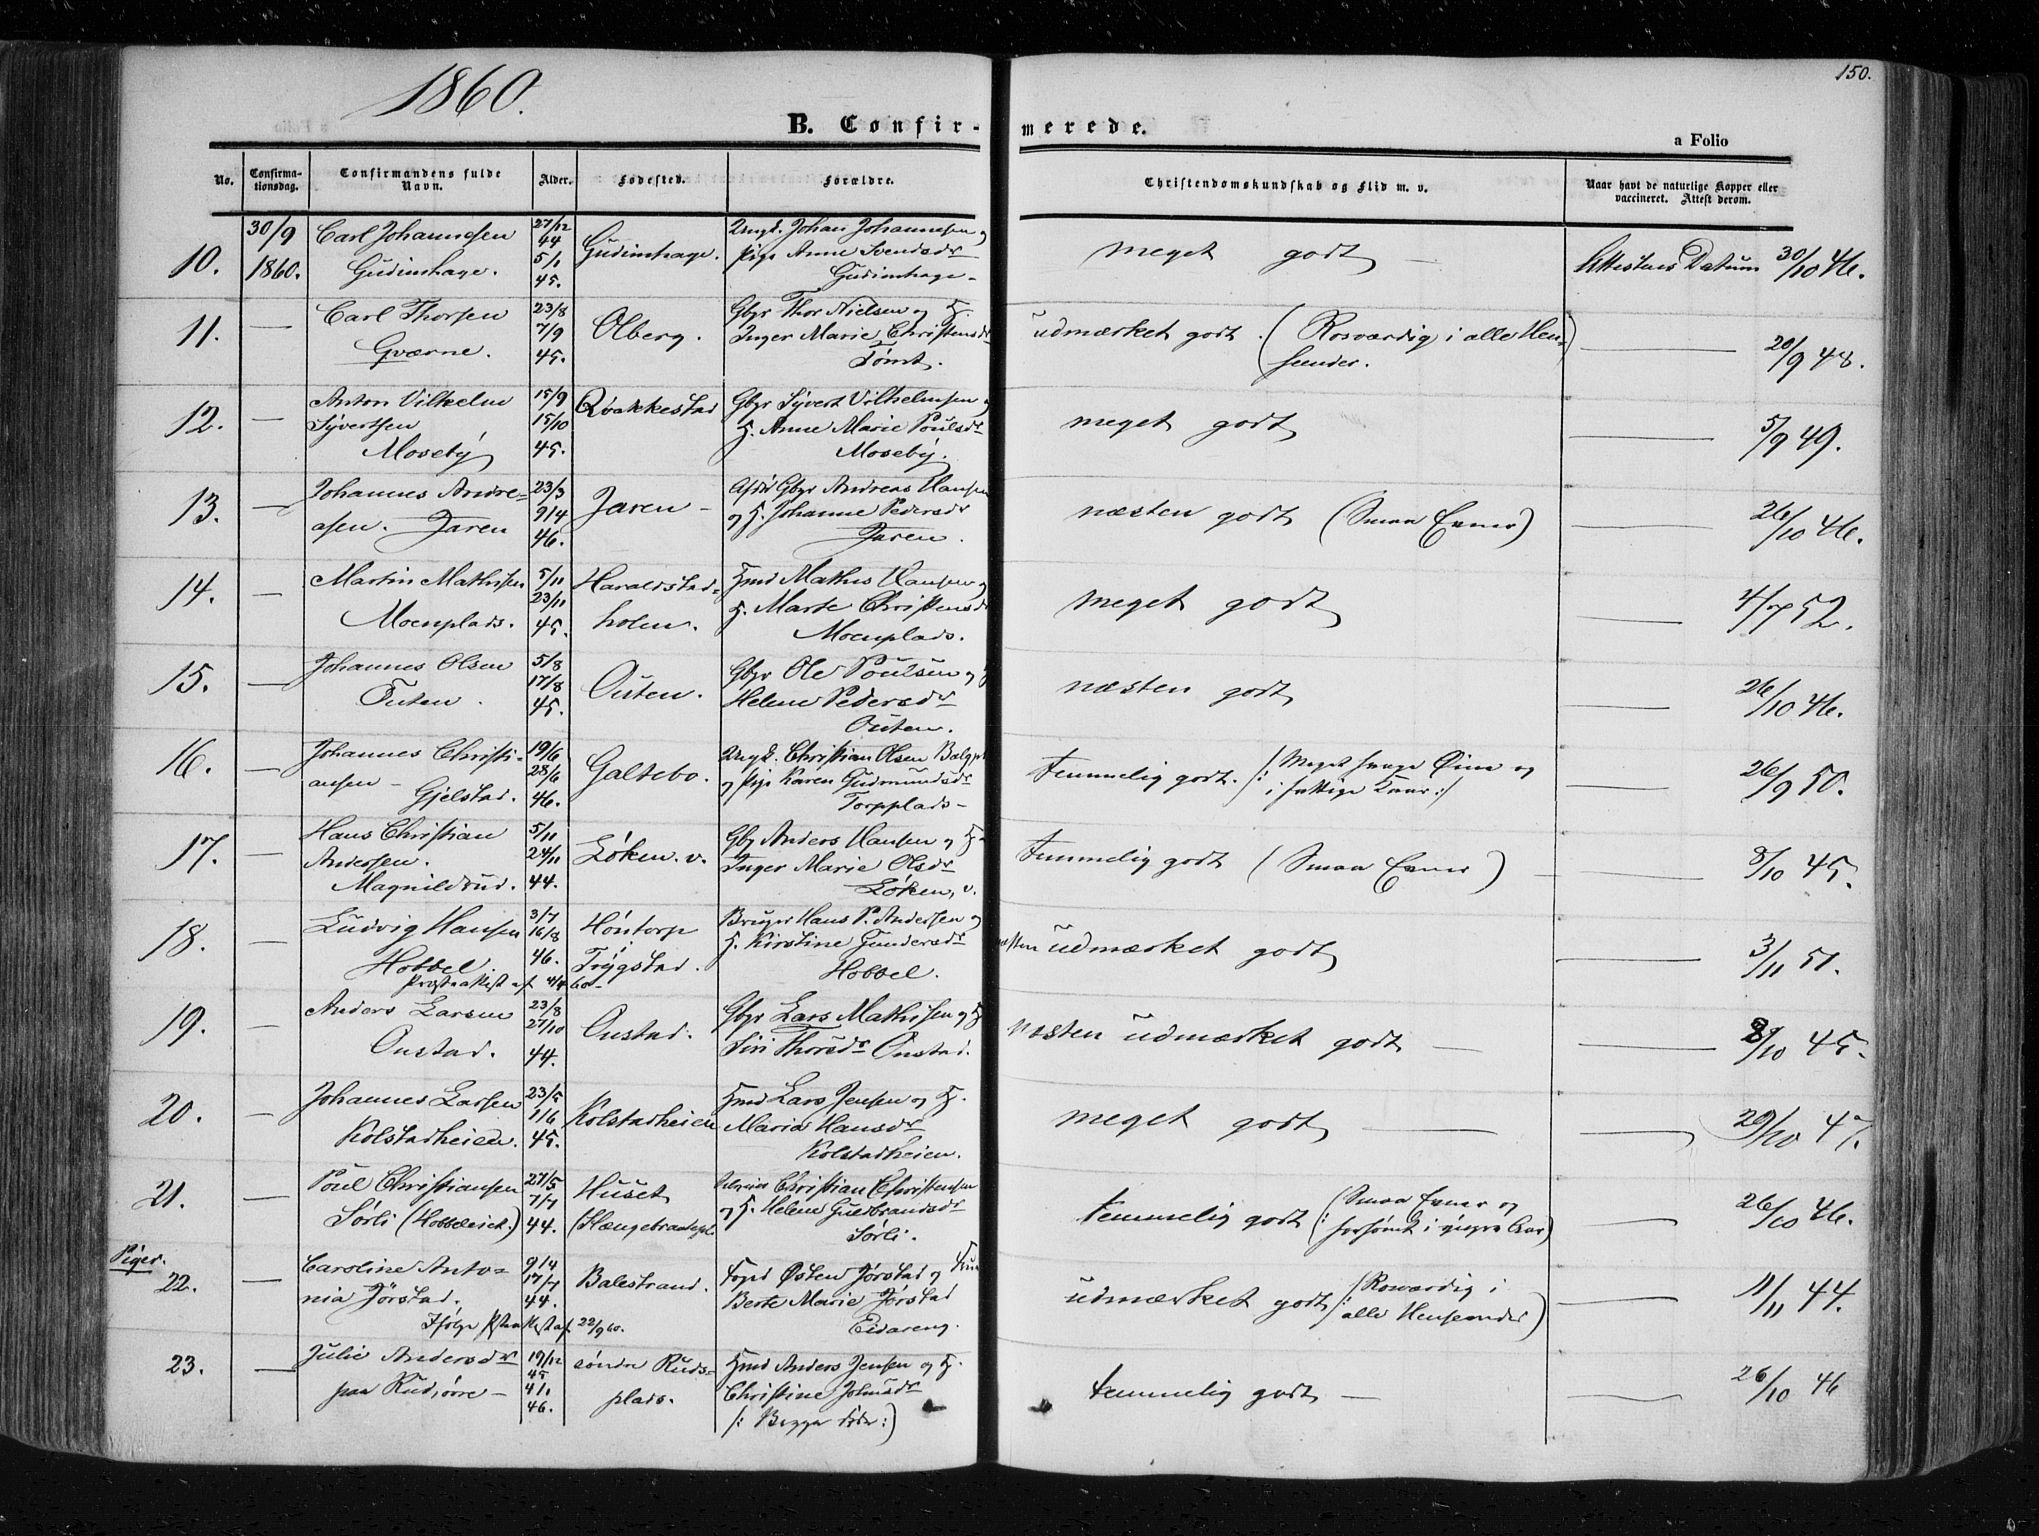 150.
1860.
B. Confirmerede.
a Folio
No.
Confirmationsdag.
Confirmandens fulde Navn.
Alder.
Fødested.
Forældre.
Christendomskundskab og Flid m. v.
Naar havt de naturlige Kopper eller vaccineret. Attest derom.
10. 30/9 1860. Carl Johannesen Gudimhage. 27/12 44 5/1 45. Gudimhage. Ungk. Johan Johannesen og Pige Anne Svendsdr Gudimhage - meget godt — Attestens Datum 30/10 46.
11. — Carl Thorsen Gværne. 23/8 7/9 45. Olberg. Gbr Thor Nielsen og H. Inger Marie Christensdr Tømt. udmærket godt. (Rosværdig i alle Henseender. — 20/9 48.
12. — Anton Vilhelm Syvertsen Moseby 15/9 15/10 45. Qvakkestad Gbr Syvert Vilhelmsen og H. Anne Marie Poulsdr Moseby. meget godt — 5/9 49.
13. — Johannes Andreasen. Jaren 23/3 9/4 46. Jaren - Afdø Gbr Andreas Hansen og H. Johanne Pedersdr Jaren. næsten godt (Smaa Evner) — 26/10 46.
14. — Martin Mathisen Moenplads. 5/11 23/11 45. Haraldstadholen. Hmd Mathis Hansen og H. Marte Christensdr Moenplads. meget godt — 4/7 52.
15. — Johannes Olsen Outen. 5/8 17/8 45. Outen. Gbr Ole Poulsen og H Helene Pedersdr Outen. næsten godt — 26/10 46.
16. — Johannes Christiansen - Gjelstad. 19/6 28/6 46. Galtebo. Ungk. Christian Olsen og Pige Karen Gudmundsdr Torpplads - temmelig godt. /: Meget svage Øine og i fattige Kaar :/ — 26/9 50.
17. — Hans Christian Andersen. Magnildrud. 5/11 24/11 44. Løken. v. Gbr Anders Hansen og H. Inger Marie Olsdr Løken, v. temmelig godt (Smaa Evner) — 8/10 45.
18. — Ludvig Hansen Hobbel. Præsteattest af 4/4 60 - 3/7 16/8 46. Høntorp Trygstad. Bruger Hans P. Andersen og H. Kirstine Gundersdr Hobbel. næsten udmærket godt — 3/11 51.
19. — Anders Larsen Onstad. 23/8 27/10 44. Onstad. Gbr Lars Mathisen og H Siri Thorsdr Onstad. Næsten udmærket godt — 8/10 45.
20. — Johannes Larsen Kolstadheien. 23/5 1/6 45. Kolstadheien Hmd Lars Jensen og H. Maria Hansdr Kolstadheien. meget godt — 29/10 47.
21. — Poul Christiansen Sørli (Hobbeleiet.) 27/5 7/7 44. Huset (Hængebraatepl. Christian Christensen og H. Helene Guldbrandsdr Sørli. temmelig godt (: Smaa Evner og forsømt i yngre Aar) — 26/10 46.
Piger.
22. — Caroline Antonia Jørstad. Ifølge Pstenattest af 22/9 60. 9/4 17/7 44. Balestrand. Fogd Østen Jørstad og Frue Berte Marie Jørstad Eidareng. udmærket godt /: Rosværdig i alle Henseender) — 11/11 44.
23. — Julie Andersdr paa Rud, øvre - 19/12 45 4/1 46. søndre Rudsplads. Hmd Anders Jensen og H. Christine Johnsdr /: Begge døde :) temmelig godt — 26/10 46